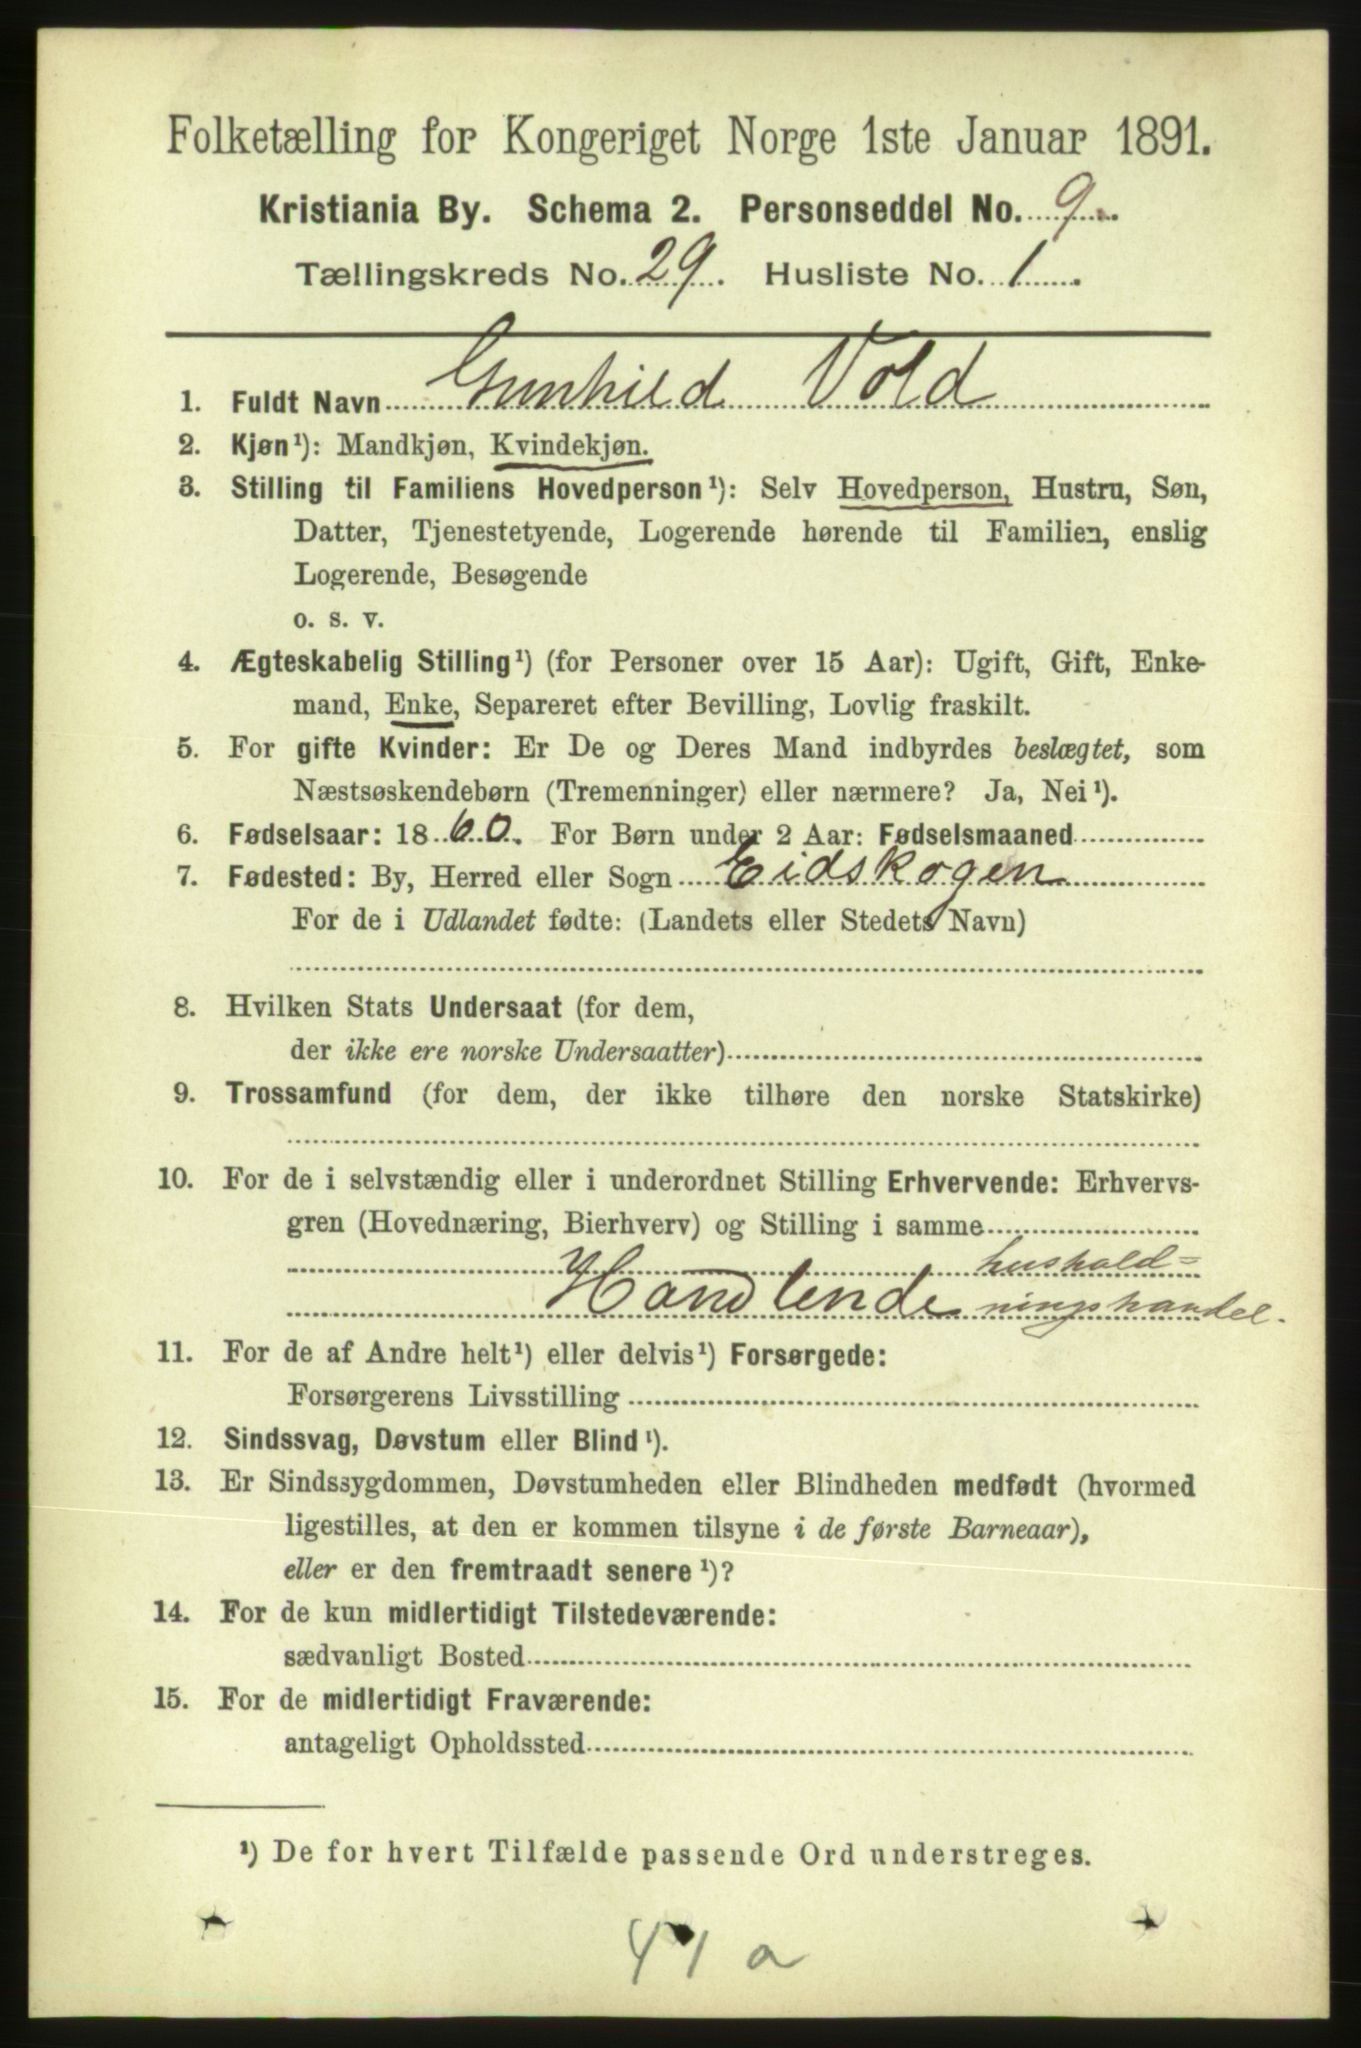 Folketælling for Kongeriget Norge 1ste Januar 1891.
Kristiania By. Schema 2. Personseddel No. 9.
Tællingskreds No. 29. Husliste No. 1.
1. Fuldt Navn Gunhild Vold
2. Kjøn¹): Mandkjøn, Kvindekjøn.
3. Stilling til Familiens Hovedperson¹): Selv Hovedperson, Hustru, Søn,
Datter, Tjenestetyende, Logerende hørende til Familien, enslig
Logerende, Besøgende
o. s. v.
4. Ægteskabelig Stilling¹) (for Personer over 15 Aar): Ugift, Gift, Enke-
mand, Enke, Separeret efter Bevilling, Lovlig fraskilt.
5. For gifte Kvinder: Er De og Deres Mand indbyrdes beslægtet, som
Næstsøskendebørn (Tremenninger) eller nærmere? Ja, Nei¹).
6. Fødselsaar: 1860. For Børn under 2 Aar: Fødselsmaaned
7. Fødested: By, Herred eller Sogn Eidskogen
For de i Udlandet fødte: (Landets eller Stedets Navn)
8. Hvilken Stats Undersaat (for dem,
der ikke ere norske Undersaatter)
9. Trossamfund (for dem, der ikke tilhøre den norske Statskirke)
10. For de i selvstændig eller i underordnet Stilling Erhvervende: Erhvervs-
gren (Hovednæring, Bierhverv) og Stilling i samme
hushold=
Handlende ningshandel.
11. For de af Andre helt¹) eller delvis¹) Forsørgede:
Forsørgerens Livsstilling
12. Sindssvag, Døvstum eller Blind¹).
13. Er Sindssygdommen, Døvstumheden eller Blindheden medfødt (hvormed
ligestilles, at den er kommen tilsyne i de første Barneaar),
eller er den fremtraadt senere¹)?
14. For de kun midlertidigt Tilstedeværende:
sædvanligt Bosted
15. For de midlertidigt Fraværende:
antageligt Opholdssted
¹) De for hvert Tilfælde passende Ord understreges.
41 a